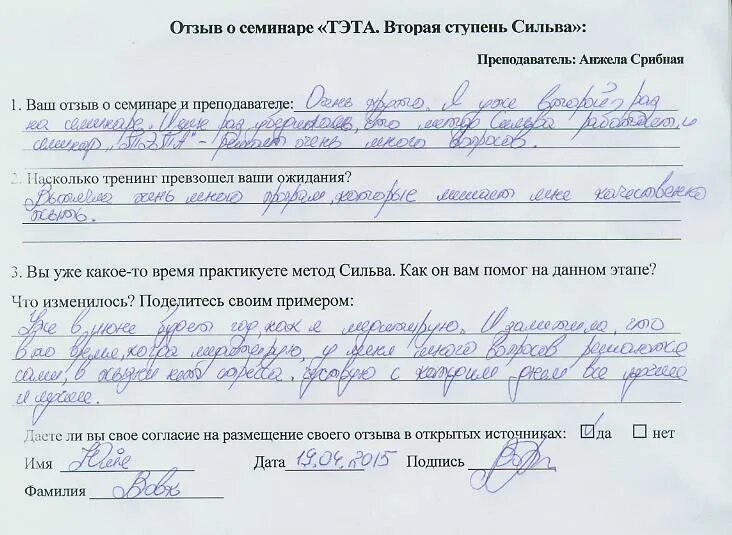 Отзыв о семинаре «ТЭТА. Вторая ступень Сильва»:
Преподаватель: Анжела Срибная
1. Ваш отзыв о семинаре и преподавателе: Очень круто. Я уже второй раз
на семинаре. И еще раз убедилась, что метод Сильва работает, и
семинар "ТЭТА" - решает очень много вопросов.
2. Насколько тренинг превзошел ваши ожидания?
очень много програм, которые мешают мне качественно
жить.
3. Вы уже какое-то время практикуете метод Сильва. Как он вам помог на данном этапе?
Что изменилось? Поделитесь своим примером:
Уже в июне будет год, как я медитирую. И заметила, что
в то время, когда медитирую, у меня много вопросов решаются
сами, в жизни нет стресса. чувствую с каждым днем все лучше
и лучше.
Даете ли вы свое согласие на размещение своего отзыва в открытых источниках: ☑ да ☐ нет
Имя Юлия Дата 19.04.2015 Подпись
Фамилия Вовк